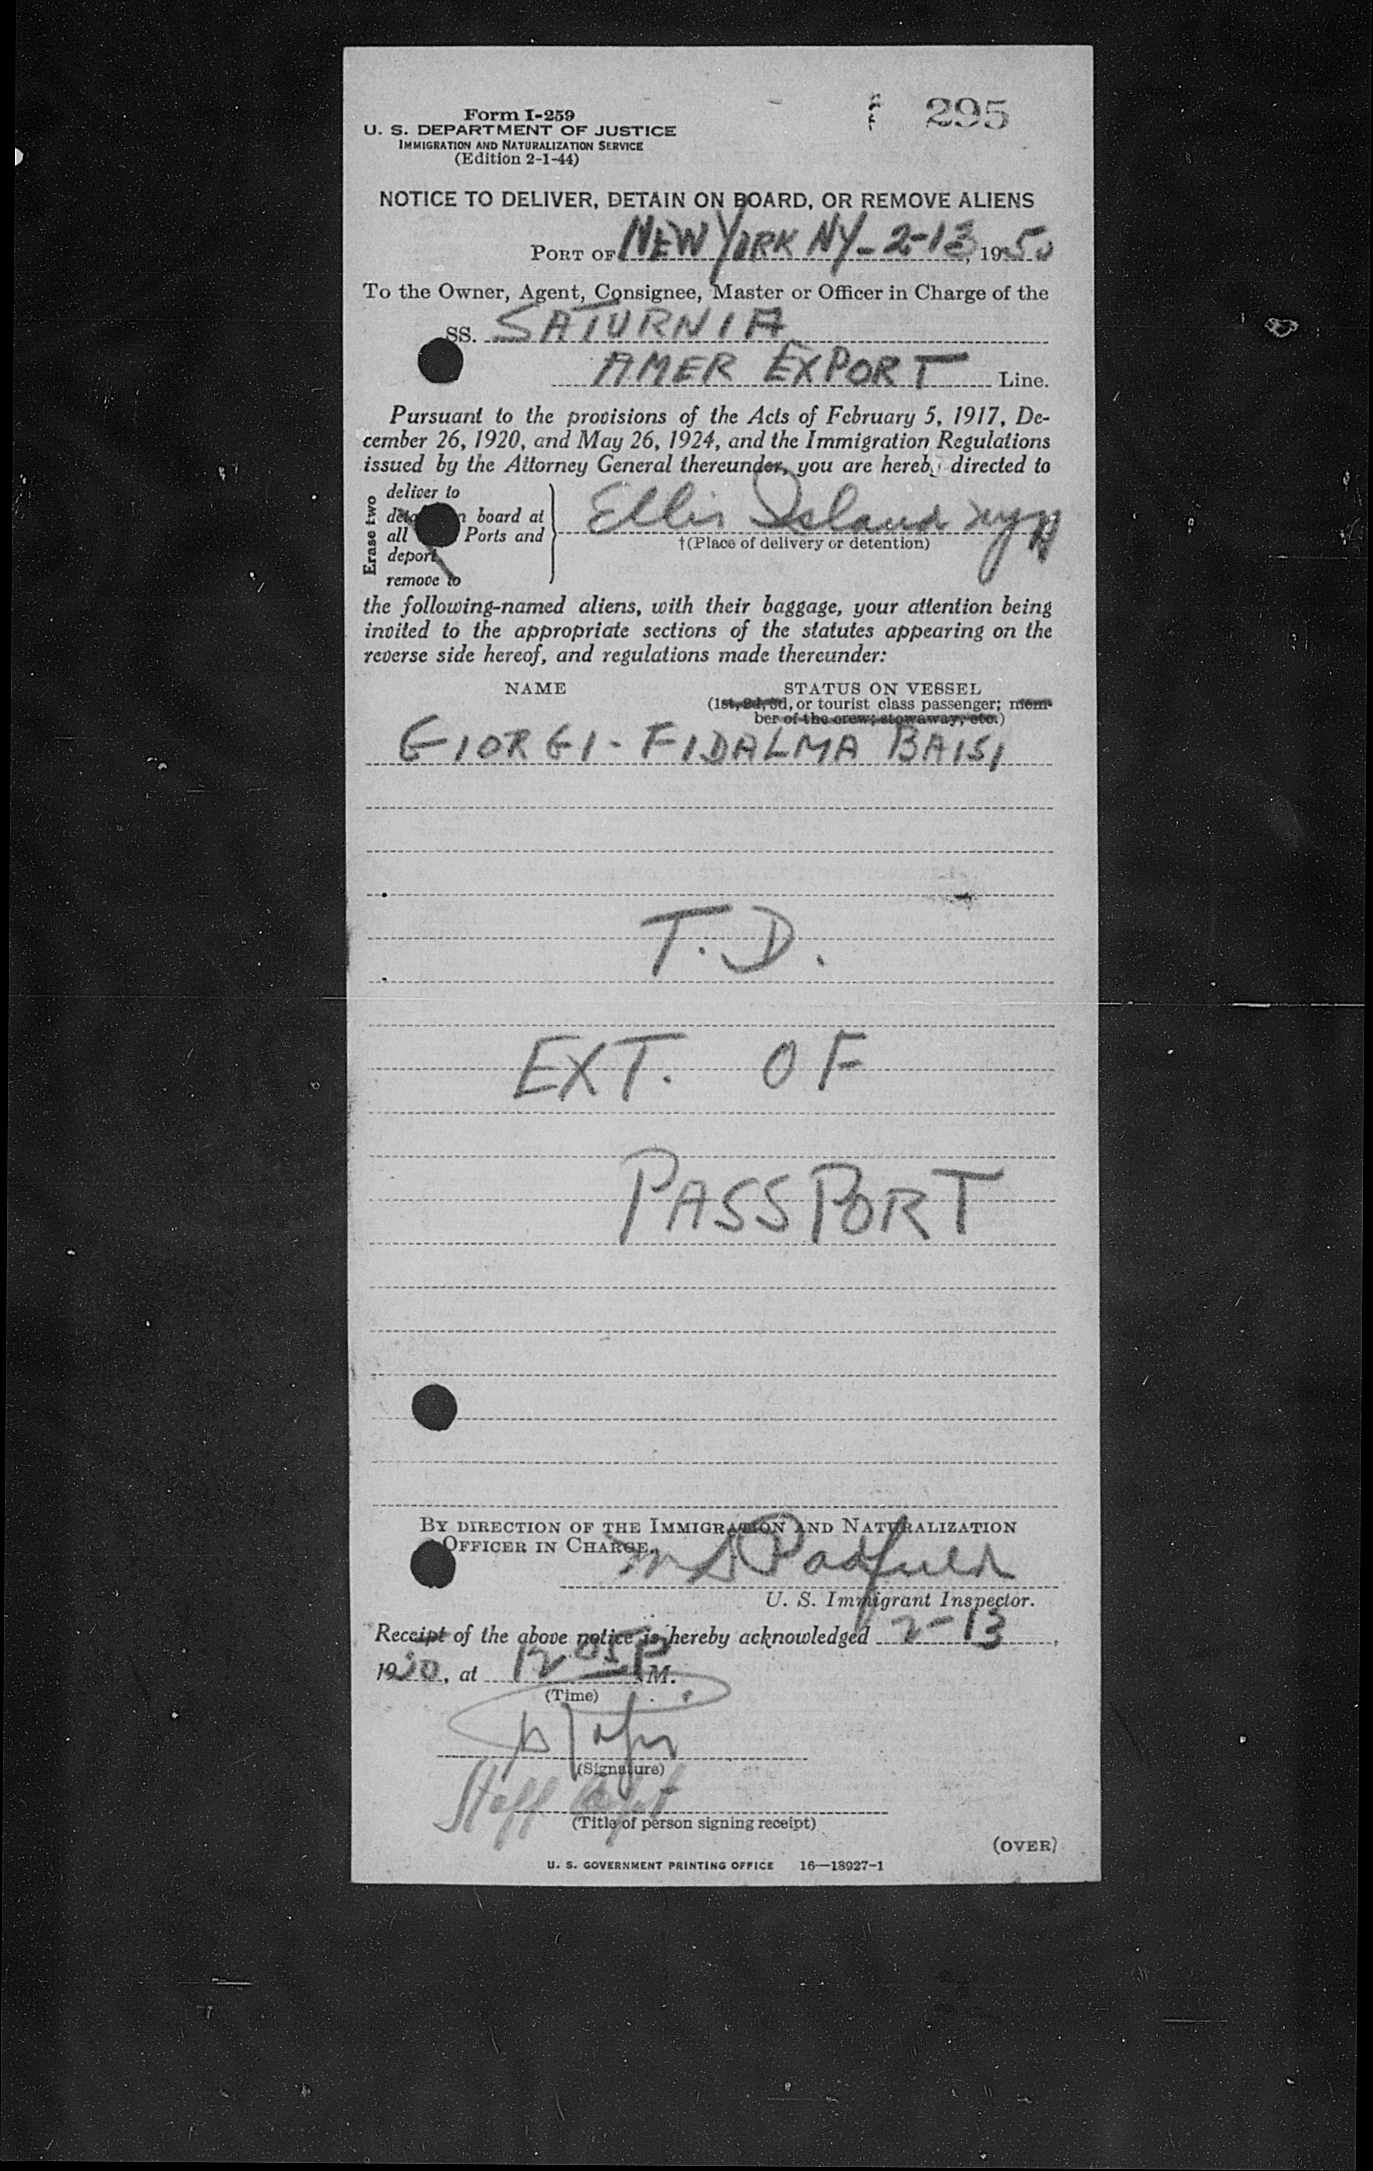 295
Form I-259
U. S. DEPARTMENT OF JUSTICE
IMMIGRATION AND NATURALIZATION SERVICE
(Edition 2-1-44)
NOTICE TO DELIVER, DETAIN ON BOARD, OR REMOVE ALIENS
PORT OF NEW YORK NY - 2-13, 1950
To the Owner, Agent, Consignee, Master or Officer in Charge of the
SS. SATURNIA
AMER EXPORT Line.
Pursuant to the provisions of the Acts of February 5, 1917, De-
cember 26, 1920, and May 26, 1924, and the Immigration Regulations
issued by the Attorney General thereunder, you are hereby directed to
Erase two
deliver to
board at
all Ports and
deport
remove to
Ellis Island NY
†(Place of delivery or detention)
the following-named aliens, with their baggage, your attention being
invited to the appropriate sections of the statutes appearing on the
reverse side hereof, and regulations made thereunder:
NAME STATUS ON VESSEL
(1st, 2d, 3d, or tourist class passenger; mem-
ber of the crew; stowaway, etc.)
GIORGI - FIDALMA BAISI
T.D.
EXT. OF
PASSPORT
BY DIRECTION OF THE IMMIGRATION AND NATURALIZATION
OFFICER IN CHARGE.
Padfield
U. S. Immigrant Inspector.
Receipt of the above notice is hereby acknowledged 2-13,
1950, at 12 05 P M.
(Time)
(Signature)
Staff Capt
(Title of person signing receipt)
(OVER)
U. S. GOVERNMENT PRINTING OFFICE 16—18927-1